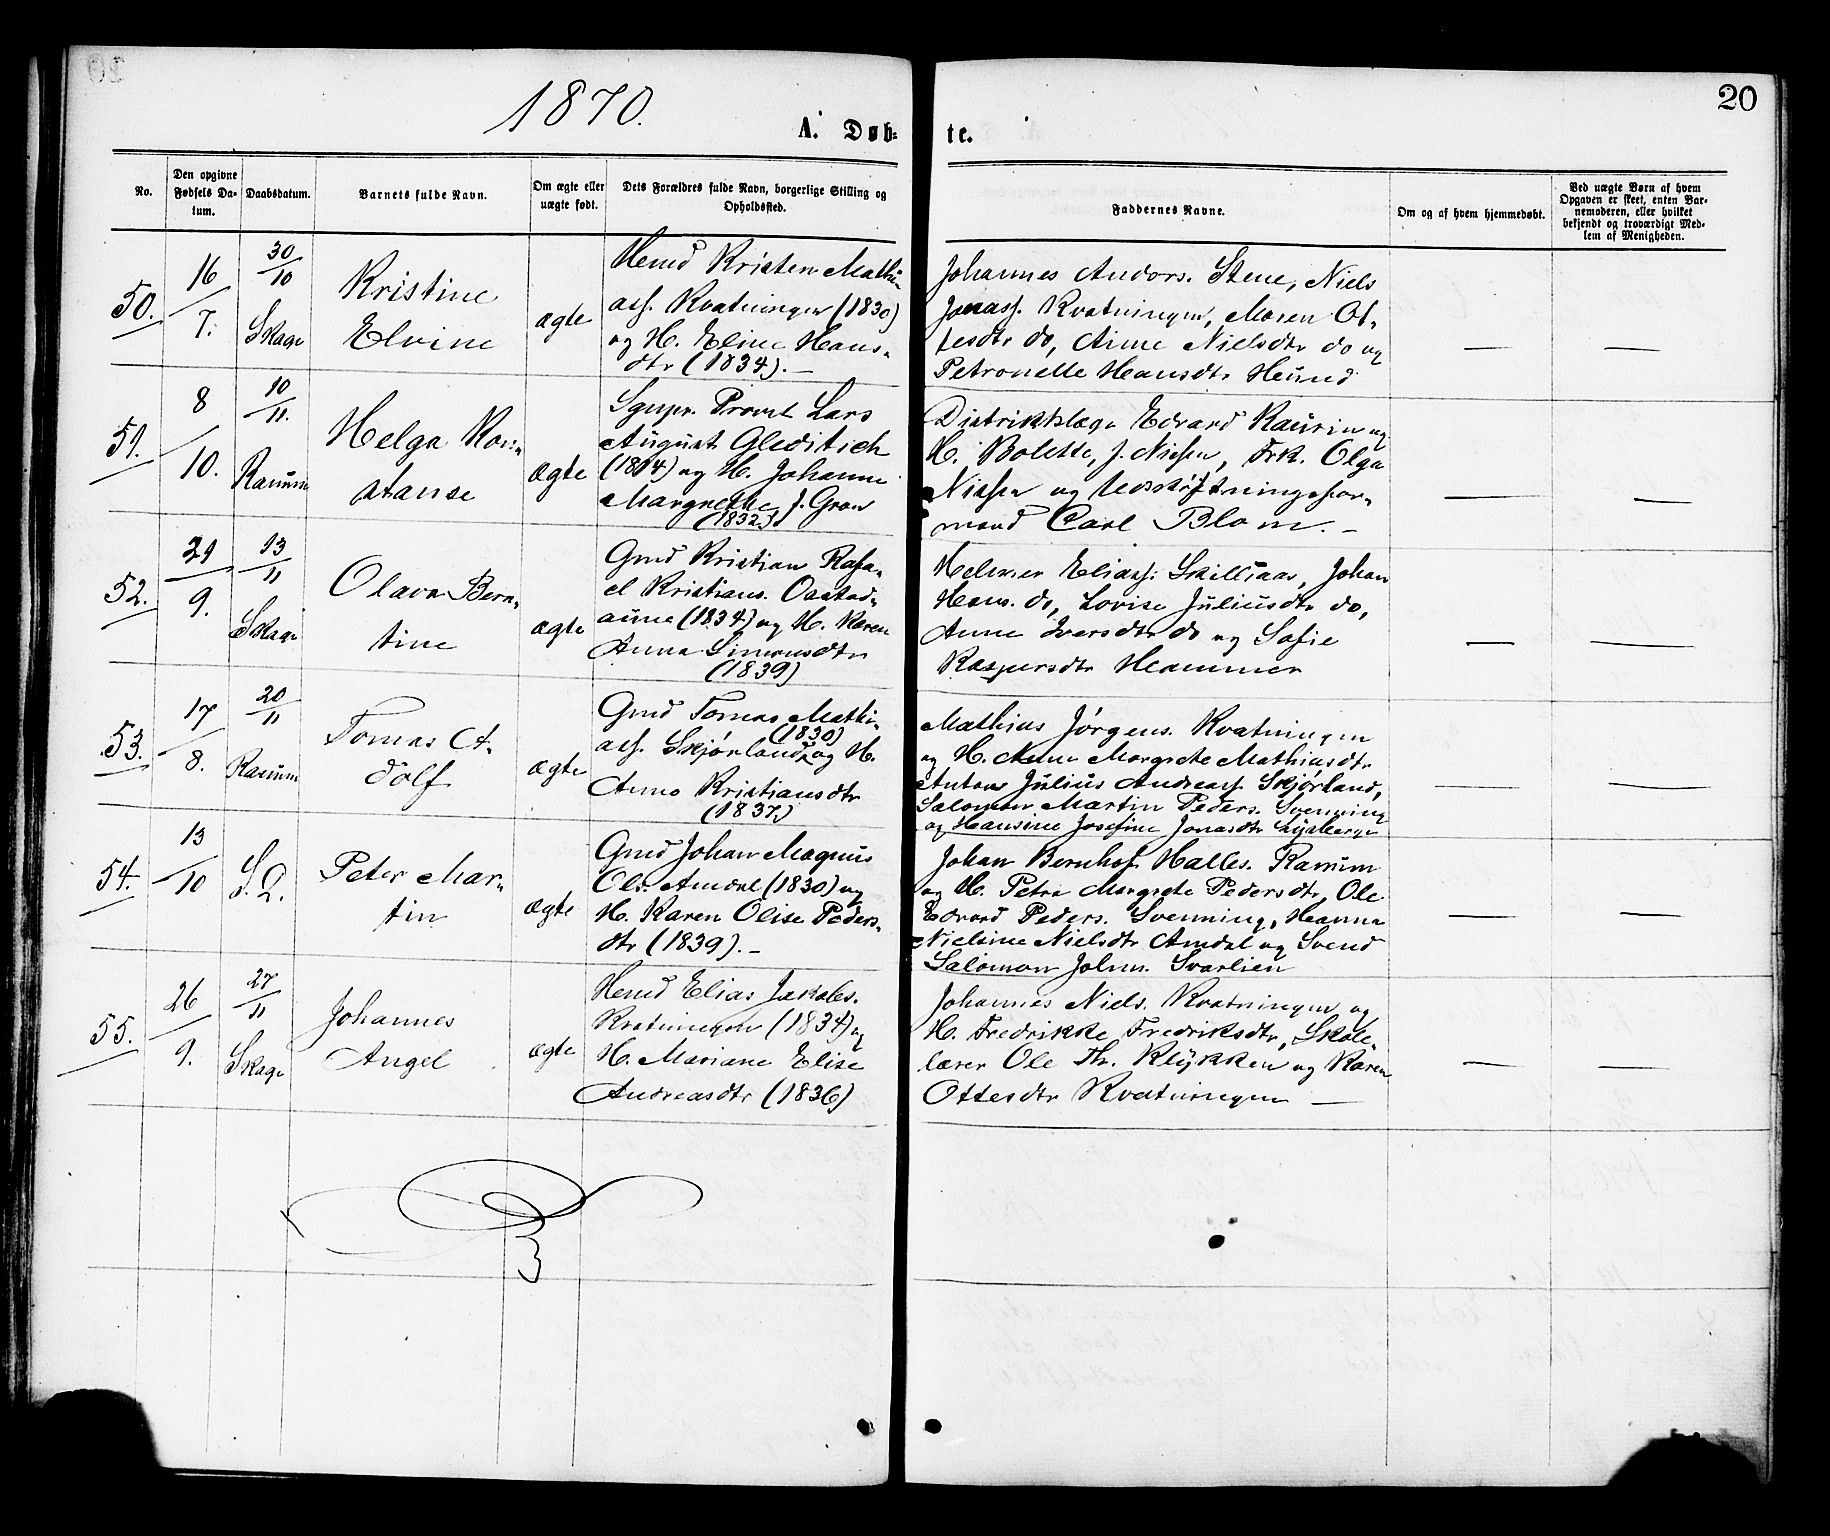 1870.
20
A. Døb-
te.
No.
Den opgivne Fødsels Da-
tum.
Daabsdatum.
Barnets fulde Navn.
Om ægte eller
uægte født.
Dets Forældres fulde Navn, borgerlige Stilling og
Opholdssted.
Faddernes Navne.
Om og af hvem hjemmedøbt.
Ved uægte Børn af hvem
Opgaven er skeet, enten Bar-
nemoderen, eller hvilket
bekjendt og troværdigt Med-
lem af Menigheden.
50.
16/7.
30/10
Skage
Kristine
Elvine
ægte
Hmd Kristen Mathi-
ass. Kvatningen (1830)
og H. Eline Hans-
dtr (1834). —
Johannes Anders. Stene, Niels
Jonass. Kvatningen, Maren Ot-
tesdtr do, Anne Nielsdtr do og
Petronelle Hansdtr Heund
—
—
51.
8/10.
10/11.
Ranum
Helga Kon-
stanse
ægte
Sgnpr. Provst Lars
August Gleditsch
og H. Johanne
Margrethe f. Gron
(1832)
Distriktslæge Edvard Kaurin og
H. Bolette, f. Nissen, Frk. Olga
Nissen og Udskiftningsfor-
mand Carl Blom. —
—
—
52.
21/9.
13/11
Skage
Olava Bern-
tine
ægte
Gmd Kristian Rafa-
el Kristians. Oastad-
aune (1834) og H. Karen
Anna Simonsdtr
(1839)
Helmer Eliass. Skillaas, Johan
Hans. do, Lovise Juliusdtr do,
Anne Iversdtr do og Sofie
Kaspersdtr Hammer
—
—
53.
17/8.
20/11
Ranum
Tomas A-
dolf
ægte
Gmd Tomas Mathi-
(1830)
ass. Skjørland og H.
Anne Kristiansdtr
(1837)
Mathias Jørgens. Kvatningen
og H. Anne Margrete Mathiasdtr
Anton Julius Andreass. Skjørland,
Salomon Martin Peders. Svenning
og Hansine Josefine Jonasdtr
—
—
54.
13/10
S. D.
Peter Mar-
tin
ægte
Gmd Johan Magnus
Ols. Amdal (1830) og
H. Karen Olise Peders-
dtr (1839). —
Johan Bernhof Halles. Ranum
og H. Petra Margrete Pedersdtr, Ole
Edvard Peders. Svenning, Hanna
Nielsine Nielsdtr Amdal og Svend
Salomon Johns. Svarlien
—
—
55.
26/9.
27/11
Skage
Johannes
Angel
ægte
Hmd Elias Jakobs.
Kvatningen (1834) og
H. Mariane Elise
Andreasdtr (1836)
Johannes Niels. Kvatningen og
H. Fredrikke Fredriksdtr, Skole-
lærer Ole Th. Klykken og Karen
Ottesdtr Kvatningen —
—
—